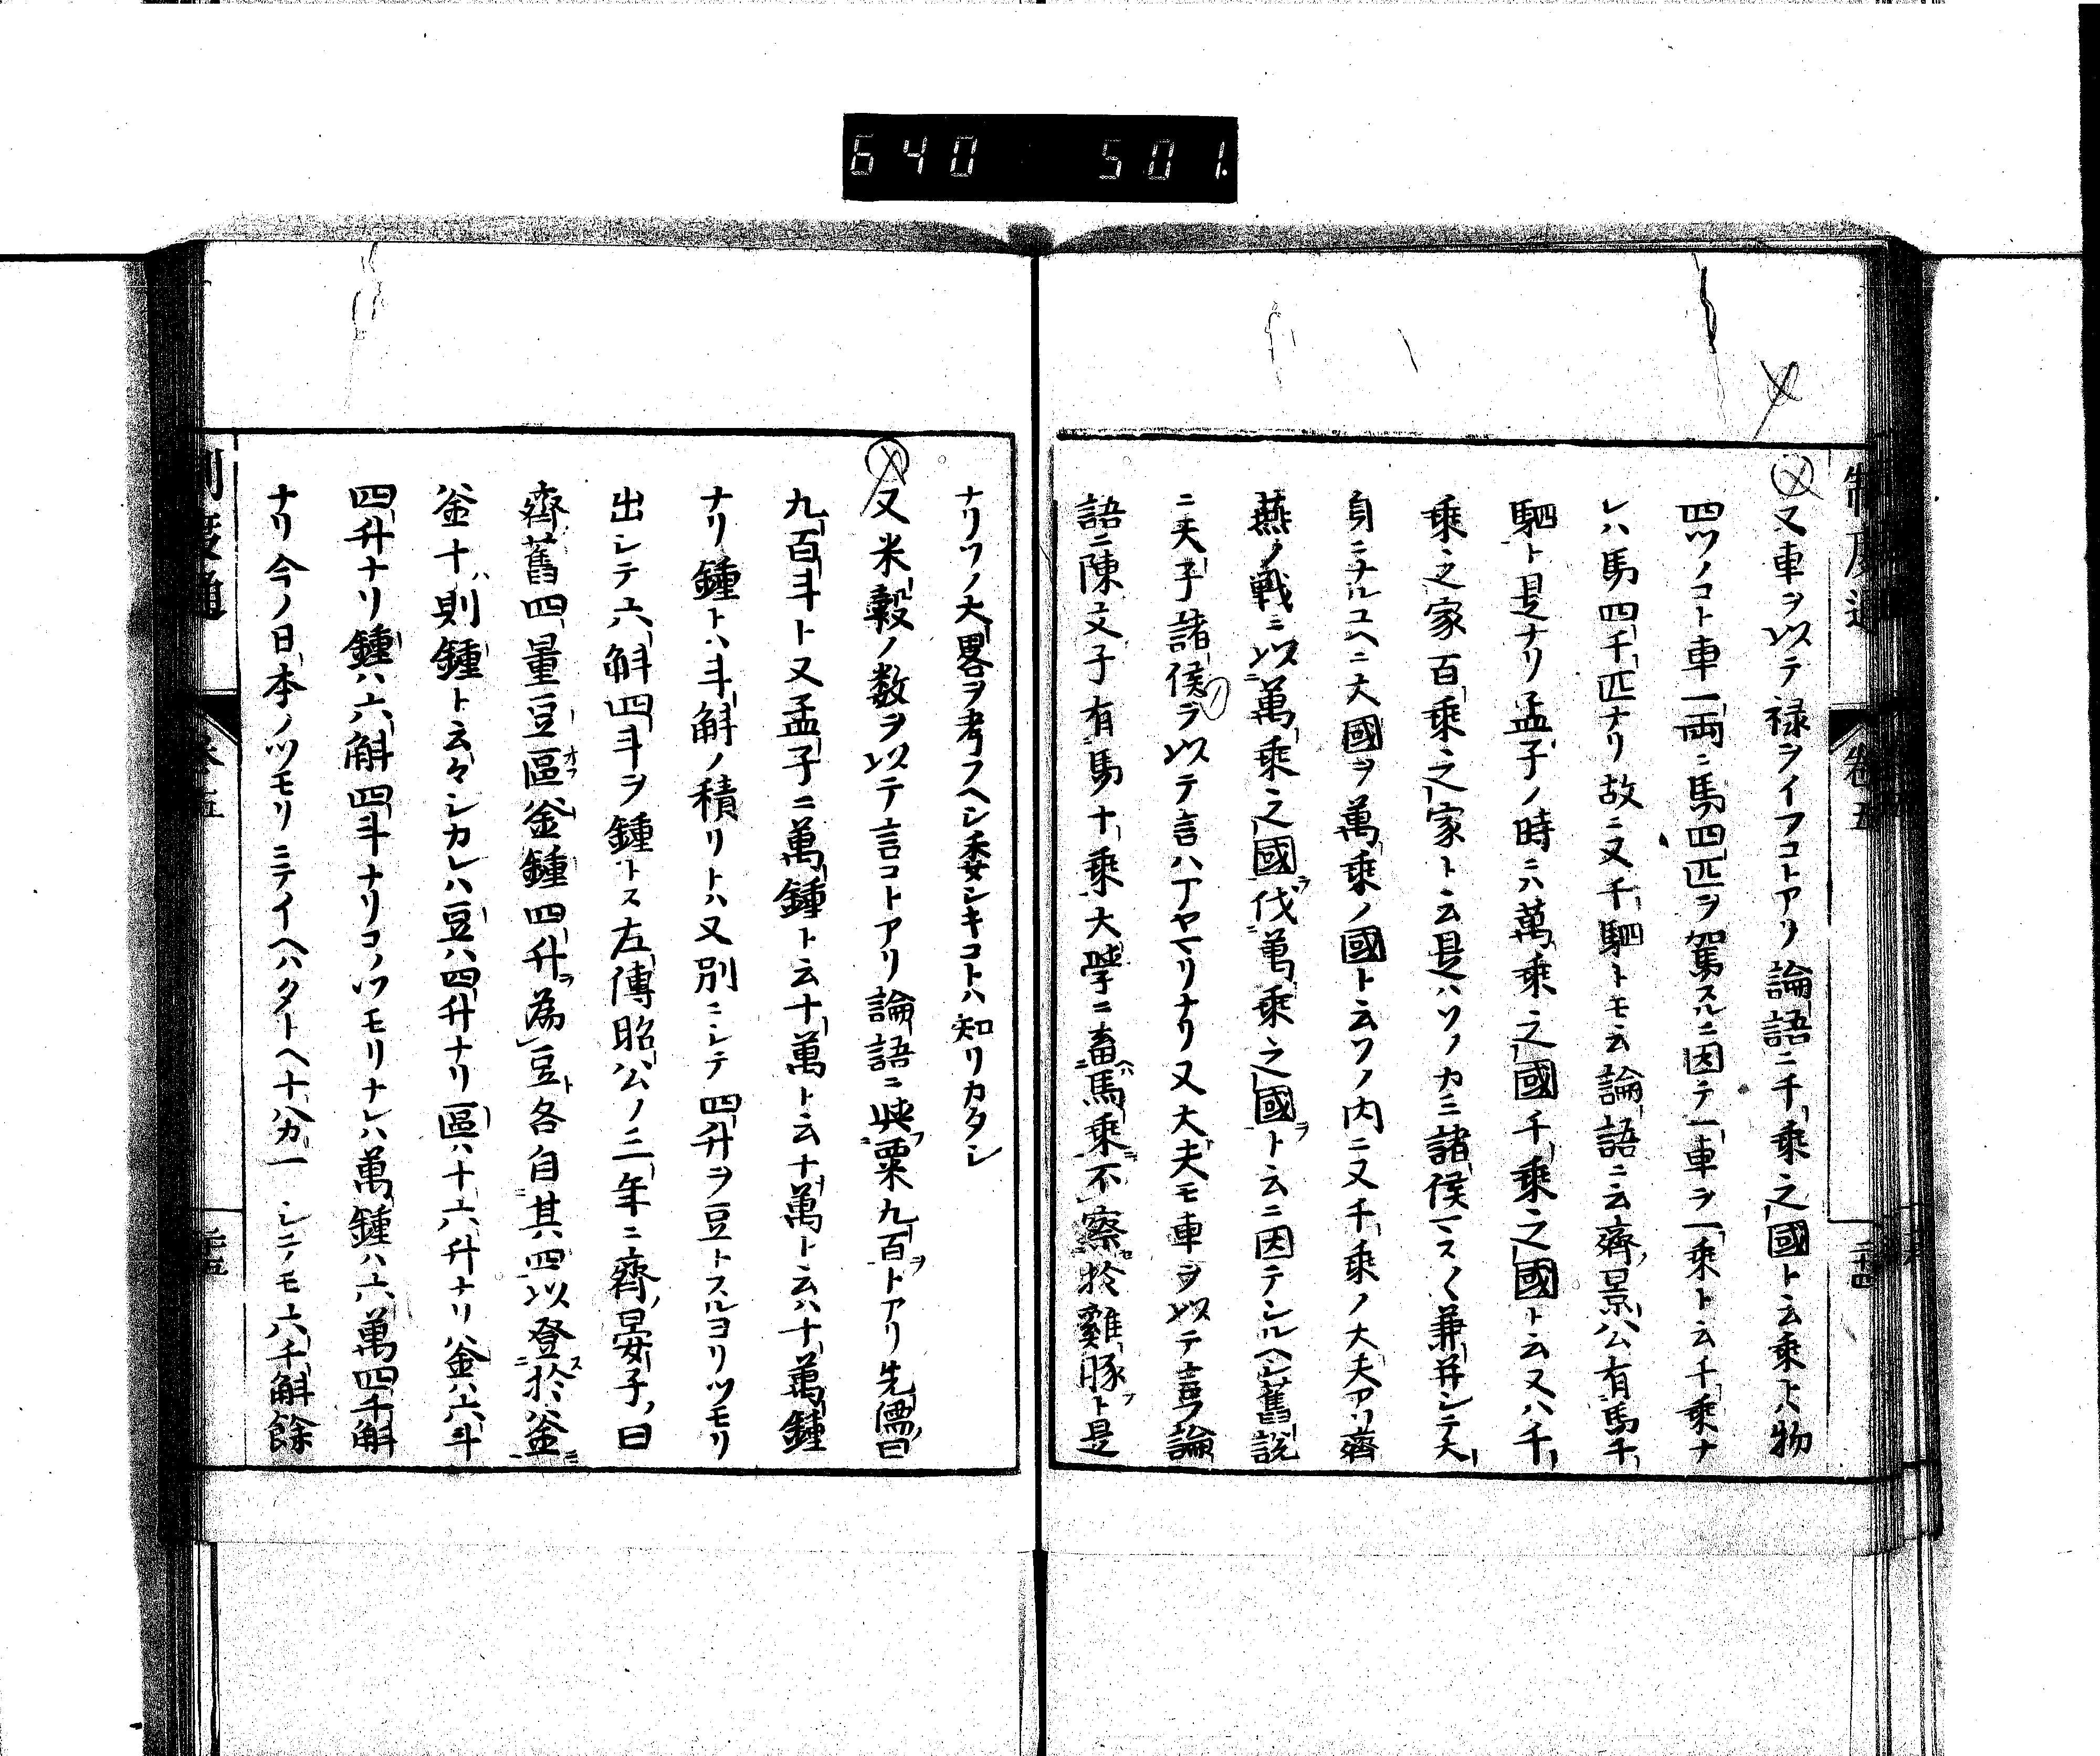 640 501.
制度通 卷五 二十四
又車ヲ以テ禄ヲイフコトアリ論語ニ千乘之國ト云乘トハ物
四ツノコト車一両ニ馬四匹ヲ駕スルニ因テ一車ヲ一乘ト云千乘ナ
レハ馬四千匹ナリ故ニ又千駟トモ云論語ニ云齊景公有馬千
駟ト是ナリ孟子ノ時ニハ萬乘之國千乘之國ト云又ハ千
乘之家百乘之家ト云是ハソノカミ諸侯マスく兼并シテ大
身ニナルユヘニ大國ヲ萬乘ノ國ト云ソノ内ニ又千乘ノ大夫アリ齊
燕ノ戰ニ以萬乘之國伐萬乘之國ヲト云ニ因テシルヘシ舊説
ニ天子諸侯ヲ以テ言ハアヤマリナリ又大夫モ車ヲ以テ言フ論
語ニ陳文子有馬十乘大學ニ畜馬乘不察於雞豚ヲト是
ナリソノ大畧ヲ考フヘシ委シキコトハ知リカタシ
又米穀ノ数ヲ以テ言コトアリ論語ニ與粟九百ヲトアリ先儒曰
九百斗ト又孟子ニ萬鍾ト云十萬ト云十萬ト云ハ十萬鍾
ナリ鍾トハ斗斛ノ積リトハ又別ニシテ四升ヲ豆トスルヨリツモリ
出シテ六斛四斗ヲ鍾トス左傳昭公ノ三年ニ齊晏子曰
齊舊四量豆區釜鍾四升ヲ為豆ト各自其四以登於釜
釜十則鍾ト云々シカレハ豆ハ四升ナリ區ハ十六升ナリ釜ハ六斗
四升ナリ鍾ハ六斛四斗ナリコノツモリナレハ萬鍾ハ六萬四千斛
ナリ今ノ日本ノツモリニテイヘハタトヘ十カ一シテモ六千斛餘
制度通 卷五 二十五